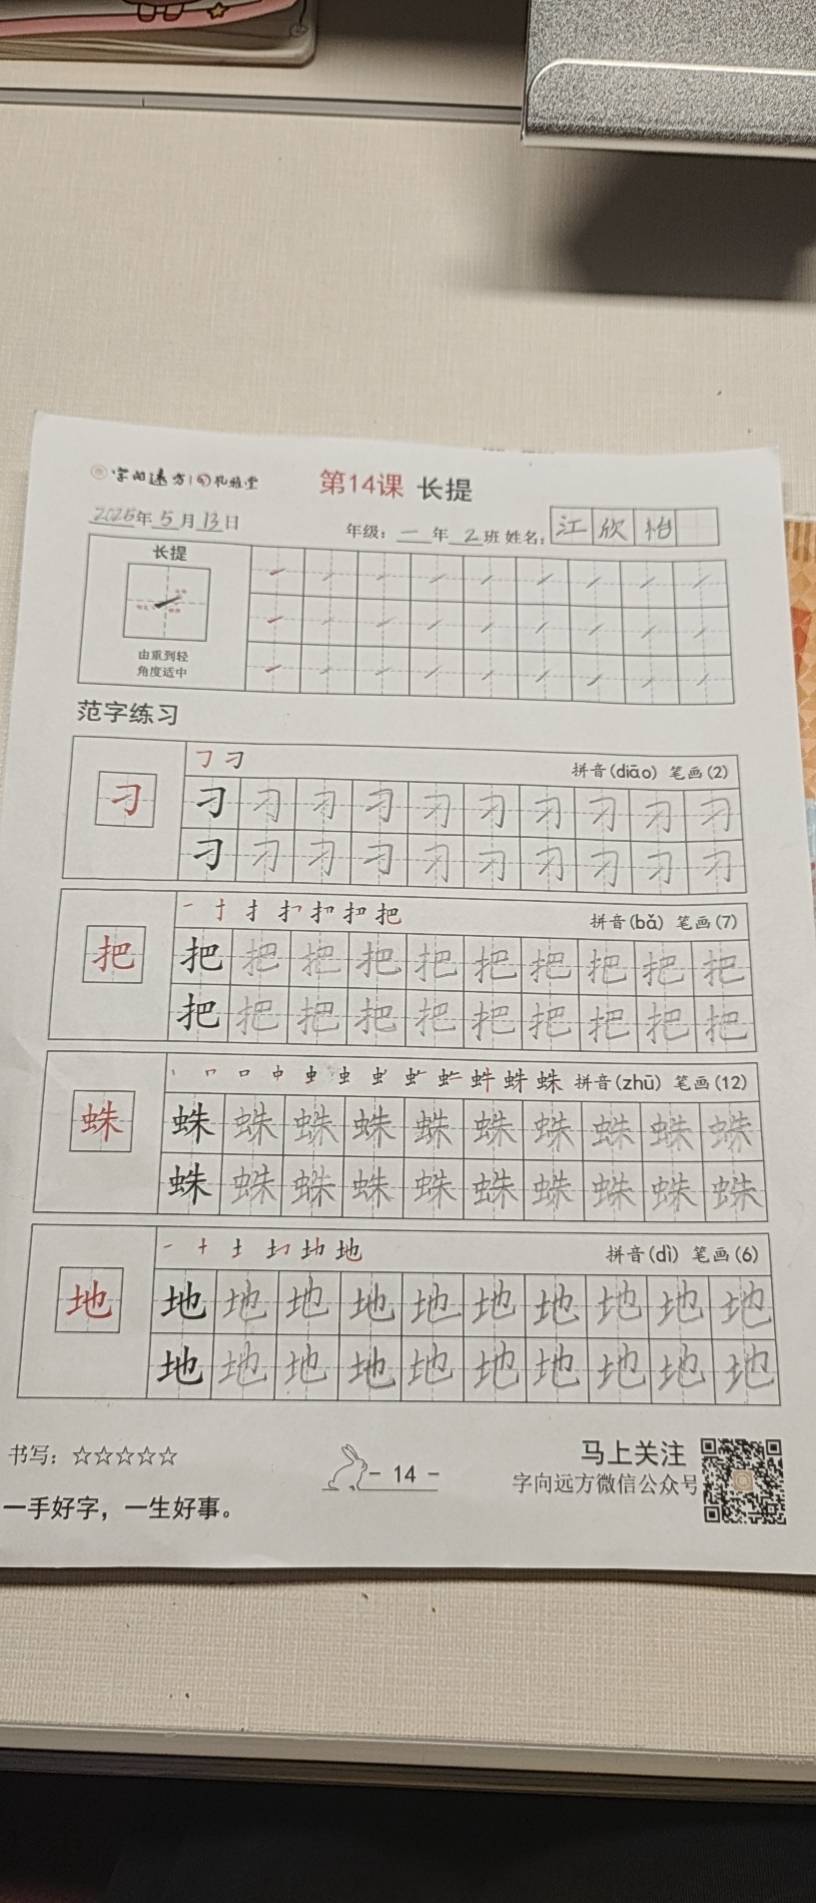 字向远方
第14课 长提
2026年 5月13日 年级：一年 2班 姓名：江欣怡
长提
由重到轻
角度适中
范字练习
㇆ 刁 拼音(diāo) 笔画(2)
刁 刁 刁 刁 刁 刁 刁 刁 刁 刁 刁
刁 刁 刁 刁 刁 刁 刁 刁 刁 刁
拼音(bǎ) 笔画(7)
把 把 把 把 把 把 把 把 把 把 把
把 把 把 把 把 把 把 把 把 把
拼音(zhū) 笔画(12)
蛛 蛛 蛛 蛛 蛛 蛛 蛛 蛛 蛛 蛛 蛛
蛛 蛛 蛛 蛛 蛛 蛛 蛛 蛛 蛛 蛛
拼音(dì) 笔画(6)
地 地 地 地 地 地 地 地 地 地 地
地 地 地 地 地 地 地 地 地 地
书写：☆☆☆☆☆ - 14 - 马上关注
字向远方微信公众号
一手好字，一生好事。